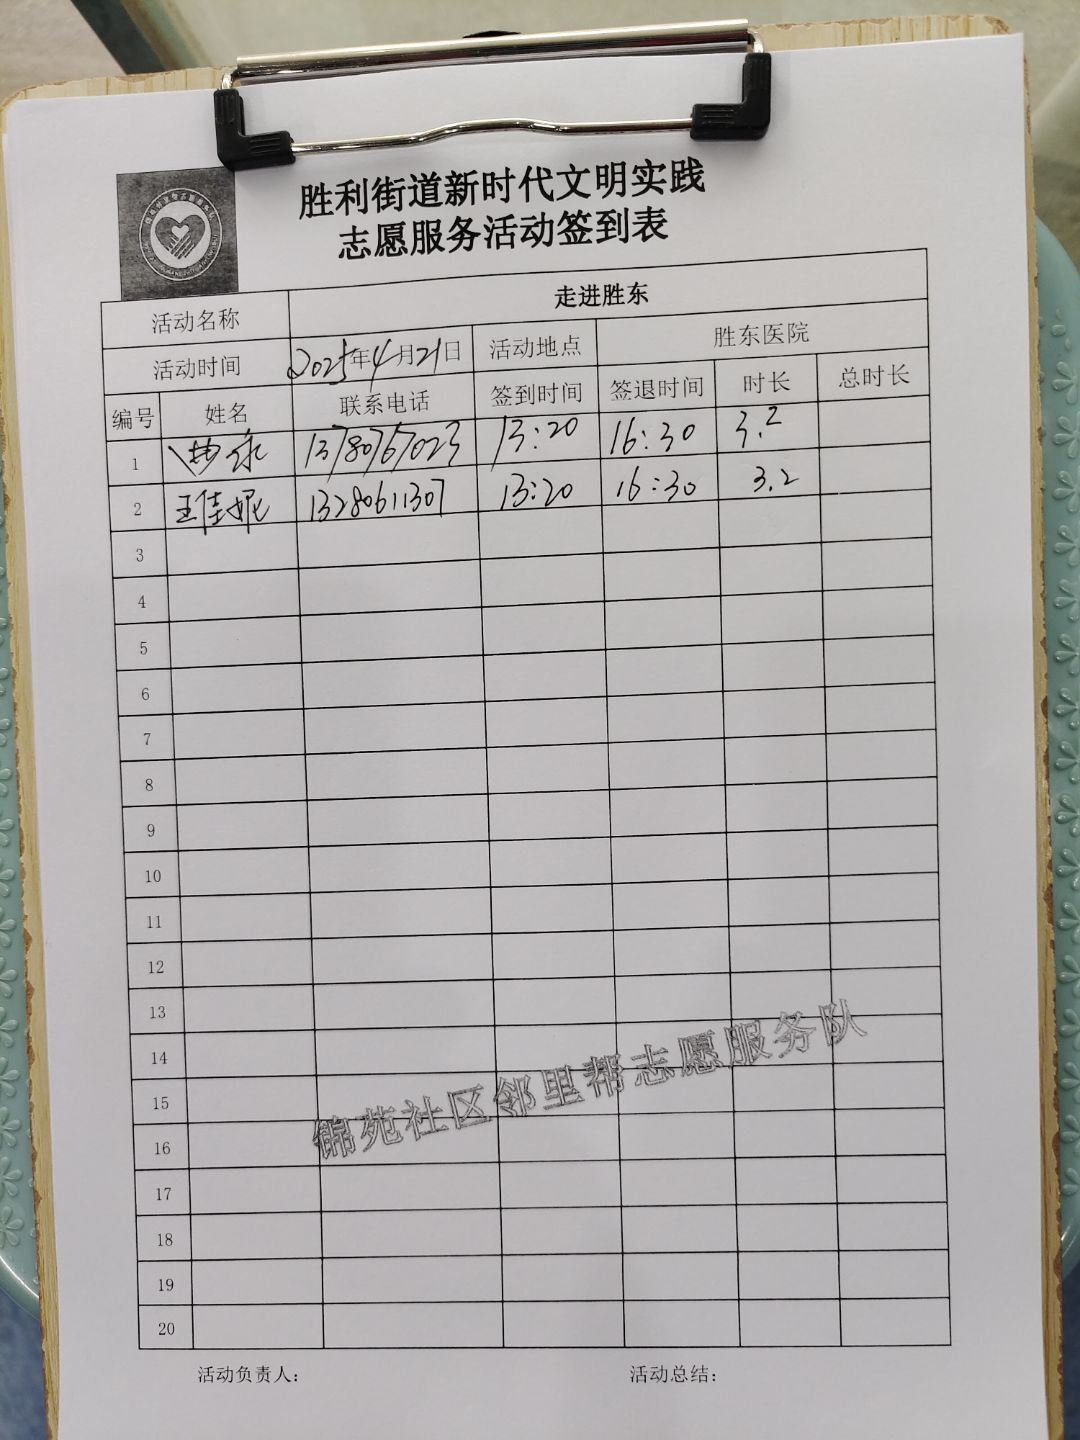 胜利街道新时代文明实践
志愿服务活动签到表
活动名称 走进胜东
活动时间 2025年4月21日 活动地点 胜东医院
编号 姓名 联系电话 签到时间 签退时间 时长 总时长
1 13780767023 13:20 16:30 3.2
2 王佳妮 13280611307 13:20 16:30 3.2
3
4
5
6
7
8
9
10
11
12
13
14
15
16
17
18
19
20
锦苑社区邻里帮志愿服务队
活动负责人: 活动总结: